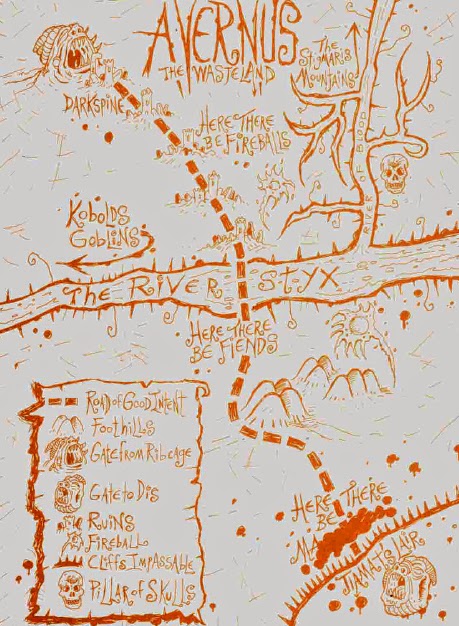 AVERNUS
THE WASTELAND
THE
STYMARIS
MOUNTAINS
DARKSPINE
HERE THERE
BE FIREBALLS
RIVER OF BLOOD
KOBOLDS
GOBLINS
THE RIVER STYX
HERE THERE
BE FIENDS
ROAD OF GOOD INTENT
FOOTHILLS
GATE FROM RIBCAGE
GATE TO DIS
RUINS
FIREBALL
CLIFFS IMPASSABLE
PILLAR OF SKULLS
HERE THERE
BE
MA
TIAMAT'S LAIR